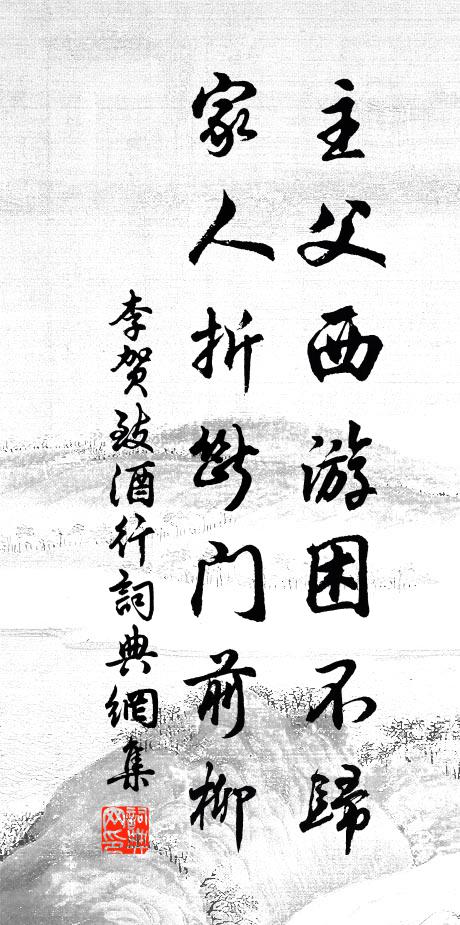 主父西游困不歸
家人折斷门前柳
李贺致酒行詞典網集
詞典网印